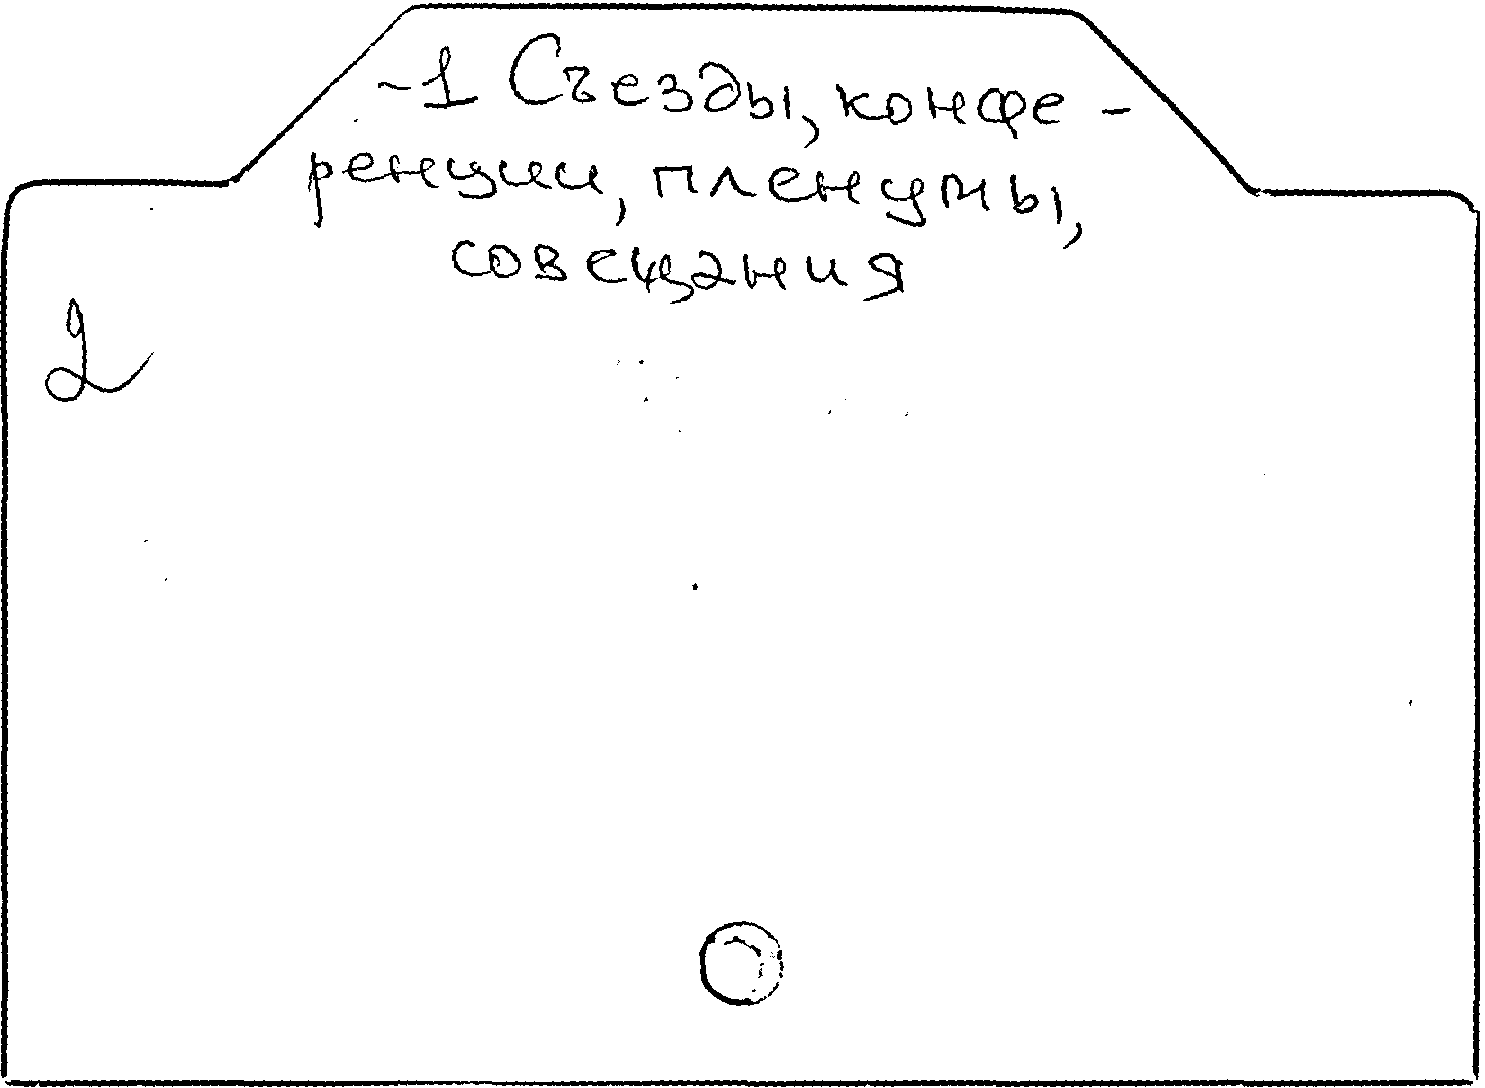 -1 Съезды, конфе-
ренции, пленумы,
совещания
2